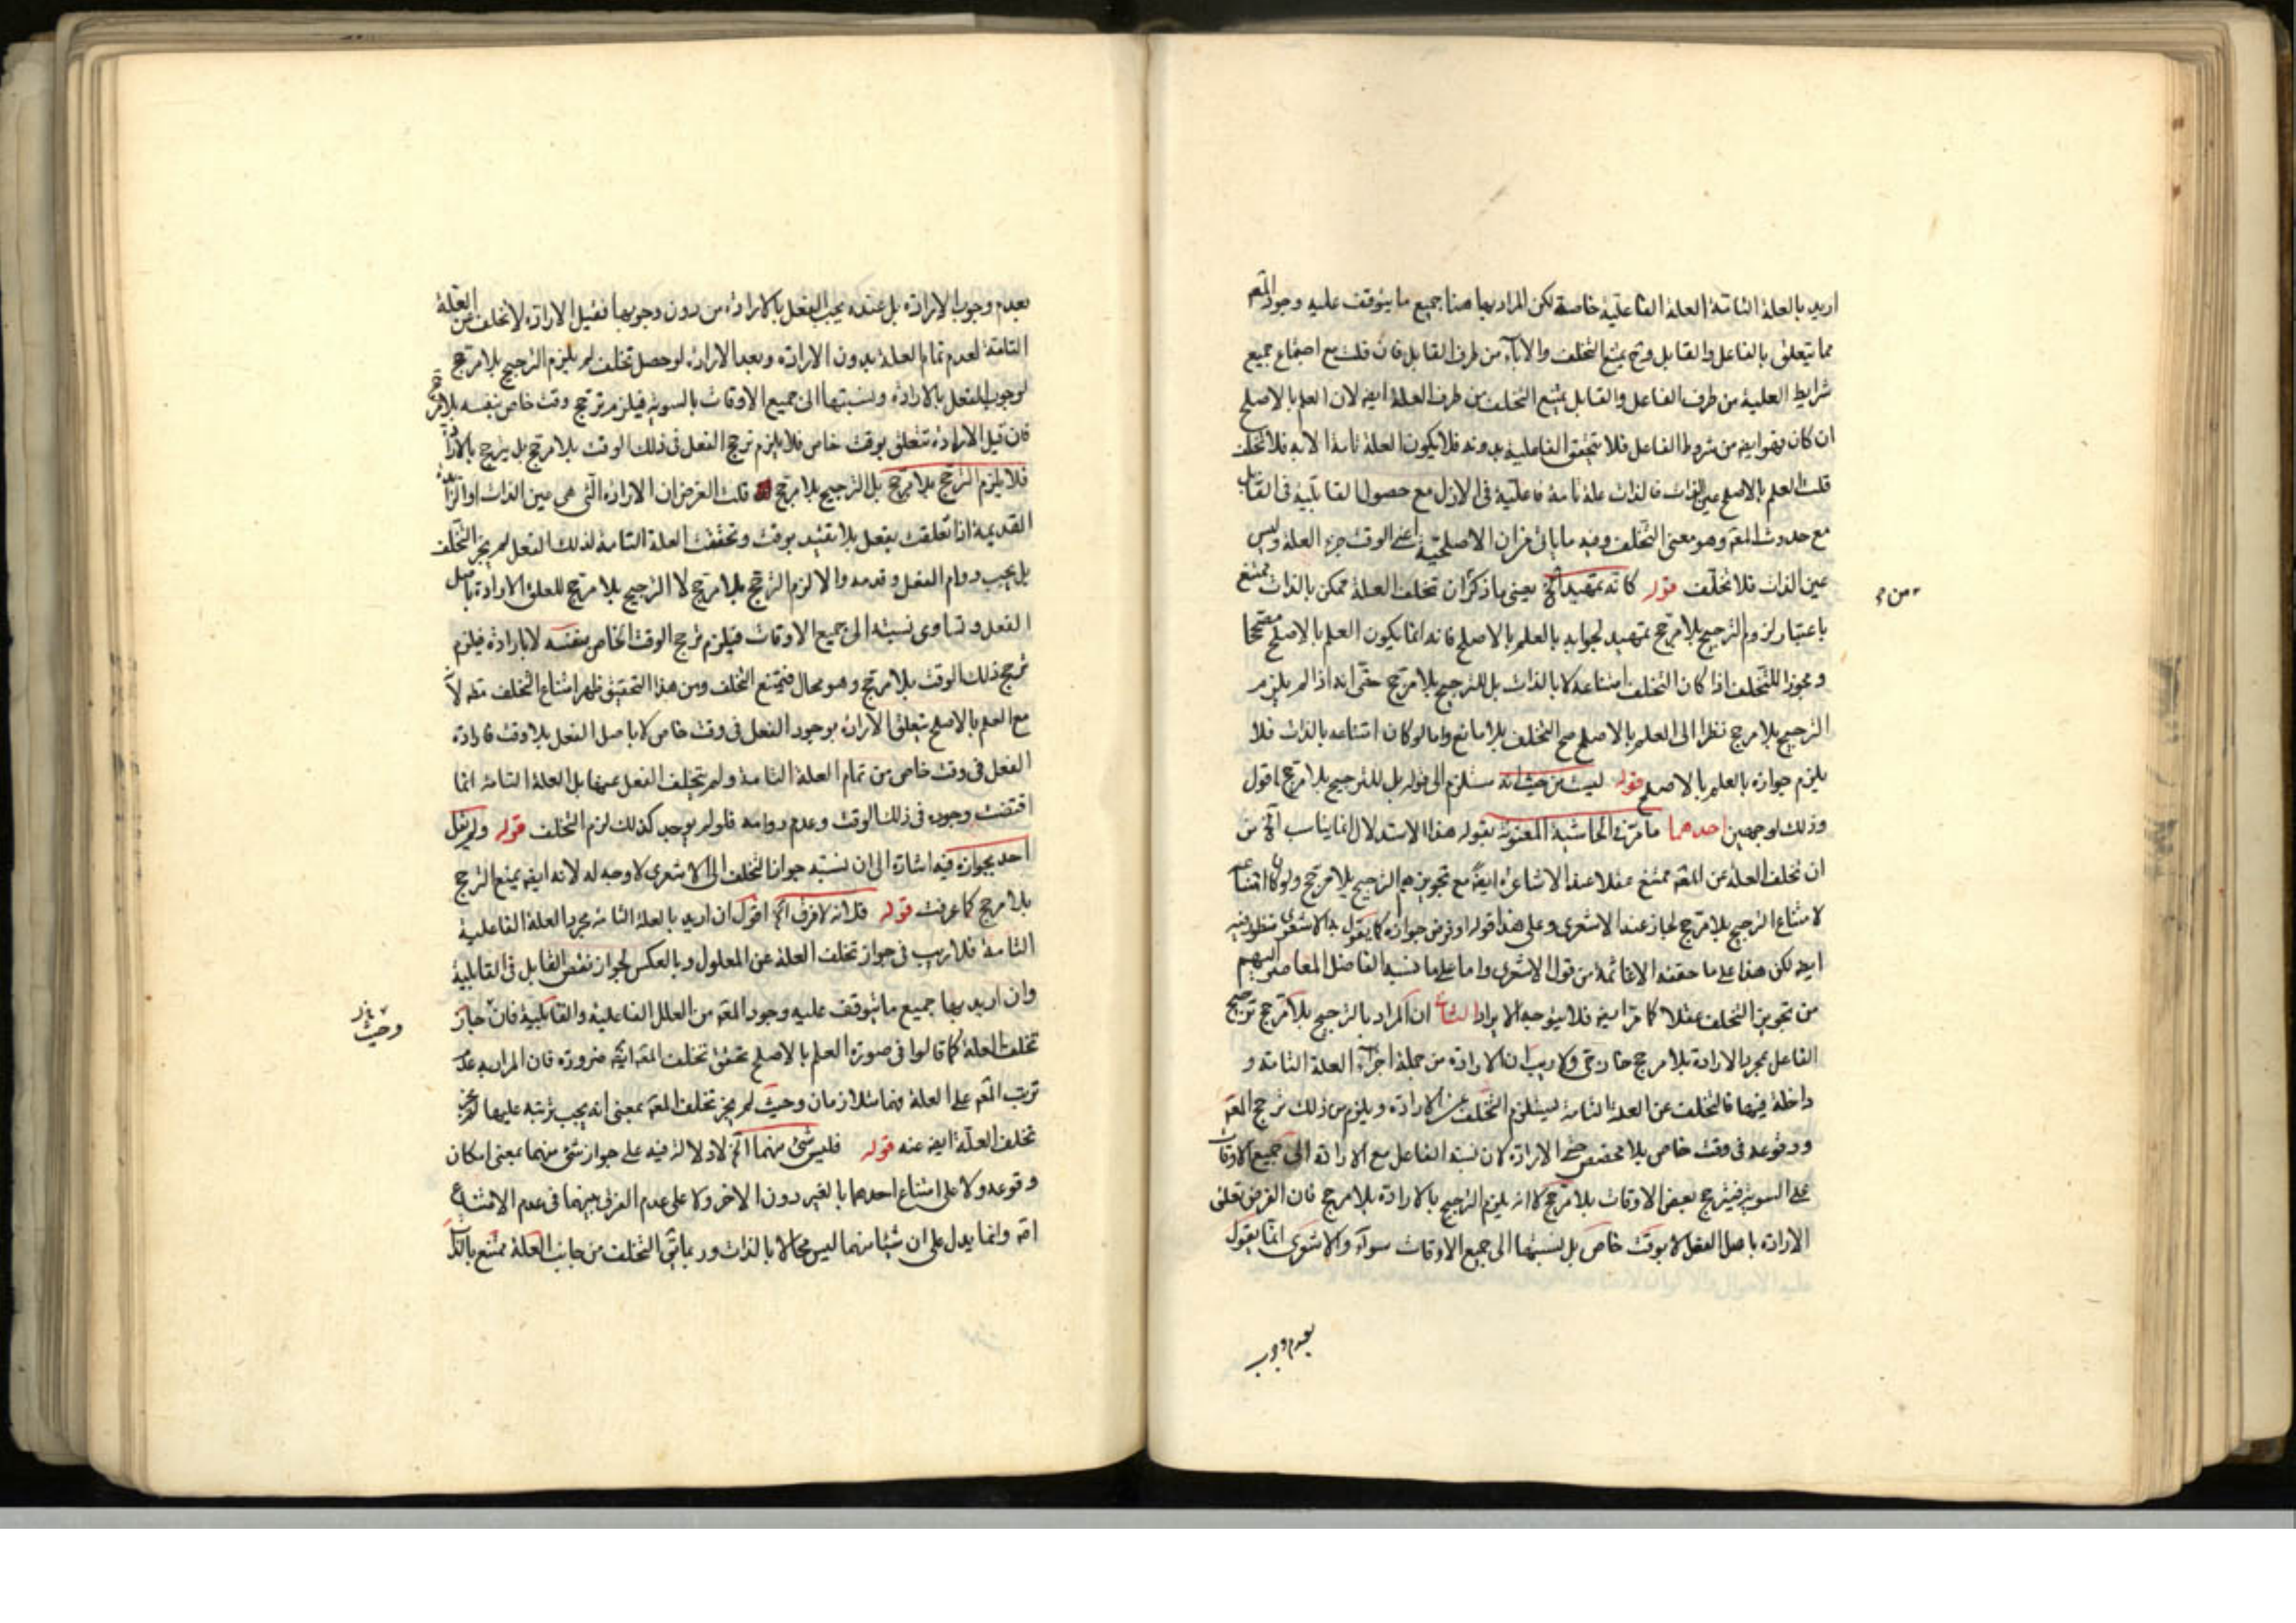 اريد بالعلة التامة العلة الفاعلية خاصة لكن المراد بها هنا جميع ما يتوقف عليه وجود المعه
مما يتعلق بالفاعل والقابل وح يمتنع التخلف والاباء من طرف القابل فان قلت مع اجتماع جميع
شرايط العلية من طرف الفاعل والقابل يمتنع التخلف من طرف العلة ايضه لان العلم بالاصلح
ان كان فهو ايضه من شروط الفاعل فلا تتحقق الفاعلية بدونه فلا يكون العلة تامة الا به فلا تخلف
قلت العلم بالاصلح عين الذات فالذات علة تامة فاعلية فى الازل مع حصول القابلية فى القابل
مع حدوث المعه وهو معنى التخلف وفيه ما ياتى من ان الاصلحية اعنى الوقت جزء العلة وليس
عين الذات فلا تخلف قوله كانه تمهيد الخ يعنى ما ذكر ان تخلف العلة ممكن بالذات ممتنع
باعتبار لزوم الترجيح بلا مرجح تمهيد لجوابه بالعلم بالاصلح فانه انما يكون العلم بالاصلح مصححا
ومجوزا للتخلف اذا كان التخلف امتناعه لا بالذات بل للترجيح بلا مرجح حتى انه اذا لم يلزم
الترجيح بلا مرجح نظرا الى العلم بالاصلح صح التخلف بلا مانع واما لو كان امتناعه بالذات فلا
يلزم جوازه بالعلم بالاصلح قوله ليست من حيث انه ستلزم الى قوله بل للترجيح بلا مرجح اقول
وذلك لوجهين احدهما ما مرّ فى الحاشية المعنونة بقوله هذا الاستدلال انما يناسب الخ من
ان تخلف العلة عن المعه ممتنع عقلا عند الاشاعرة ايضه مع تجويزهم الترجيح بلا مرجح ولو كان امتناعه
لامتناع الترجيح بلا مرجح لجاز عند الاشعرى وعلى هذا قوله او فرض جوازه كما يقول به الاشعرى منظور فيه
ايضه لكن هذا على ما حققنه الاغا ئمه من قول الاشعرى واما على ما نسبه الفاضل المعاصر اليهم
من تجويز التخلف عقلا كما مرّ ايضه فلا يتوجه الايراد الثانى ان المراد بالترجيح بلا مرجح ترجيح
الفاعل بمجرد الارادة بلا مرجح خارجى ولا ريب ان الارادة من جملة اجزاء العلة التامة و
داخلة فيها فالتخلف عن العلة التامة يستلزم التخلف عن الارادة ويلزم من ذلك ترجح المعه
ووقوعه فى وقت خاص بلا مخصص حتى الارادة لان نسبة الفاعل مع الارادة الى جميع الاوقات
على السوية فيترجح بعض الاوقات بلا مرجح لا انه يلزم الترجيح بالارادة بلا مرجح فان الفرض تعلق
الارادة باصل الفعل لا بوقت خاص بل نسبتها الى جميع الاوقات سواء والاشعرى انما يقول
بعدم وجوب
بعدم وجوب الارادة بل عنده يجب الفعل بالارادة من دون وجوبها فقبل الارادة لا تخلف عن العلة
التامة لعدم تمام العلة بدون الارادة وبعد الارادة لو حصل تخلف لم يلزم الترجيح بلا مرجح
لوجوب الفعل بالارادة ونسبتها الى جميع الاوقات بالسوية فيلزم ترجح وقت خاص بنفسه بلا مرجح
فان قيل الارادة تتعلق بوقت خاص فلا يلزم ترجح الفعل فى ذلك الوقت بلا مرجح بل يترجح بالارادة
فلا يلزم الترجح بلا مرجح بل الترجيح بلا مرجح قلت الغرض ان الارادة التى هى عين الذات او الزائدة
القديمة اذا تعلقت بفعل بلا تقييد بوقت وتحققت العلة التامة لذلك الفعل لم يجز التخلف
بل يجب دوام الفعل وقدمه والا لزم الترجح بلا مرجح لا الترجيح بلا مرجح لتعلق الارادة باصل
الفعل وتساوى نسبته الى جميع الاوقات فيلزم ترجح الوقت الخاص بنفسه لا بارادة فيلزم
ترجح ذلك الوقت بلا مرجح وهو محال فيمتنع التخلف ومن هذا التحقيق ظهر امتناع التخلف مطه لان
مع العلم بالاصلح يتعلق الارادة بوجود الفعل فى وقت خاص لا باصل الفعل بلا وقت فارادة
الفعل فى وقت خاص من تمام العلة التامة ولم يتخلف الفعل عنها بل العلة التامة انما
اقتضت وجوده فى ذلك الوقت وعدم دوامه فلو لم يوجد كذلك لزم التخلف قوله ولم يقل
احد بجوازه فيه اشارة الى ان نسبة جواز التخلف الى الاشعرى لا وجه له لانه ايضه يمنع الترجح
بلا مرجح كما عرفت قوله قلت انه لا فرق الخ اقول ان اريد بالعلة التامة مجرد العلة الفاعلية
التامة فلا ريب فى جواز تخلف العلة عن المعلول وبالعكس لجواز نقص القابل فى القابلية
وان اريد بها جميع ما يتوقف عليه وجود المعه من العلل الفاعلية والقابلية فان جاز
تخلف العلة كما قالوا فى صورة العلم بالاصلح تحقق تخلف المعه ايضه ضرورة فان المراد به عدم
ترتب المعه على العلة فهما متلازمان وحيث لم يجز تخلف المعه بمعنى انه يجب ترتبه عليها لم يجز
تخلف العلة ايضه عنه قوله فليس شئ منهما الخ لا دلالة فيه على جواز شئ منهما بمعنى امكان
وقوعه ولا على امتناع احدهما بالغير دون الاخر ولا على عدم الفرق بينهما فى عدم الامتناع
اقه وانما يدل على ان شيئا منهما ليس محالا بالذات وربما يتى التخلف من جانب العلة ممتنع بالذات